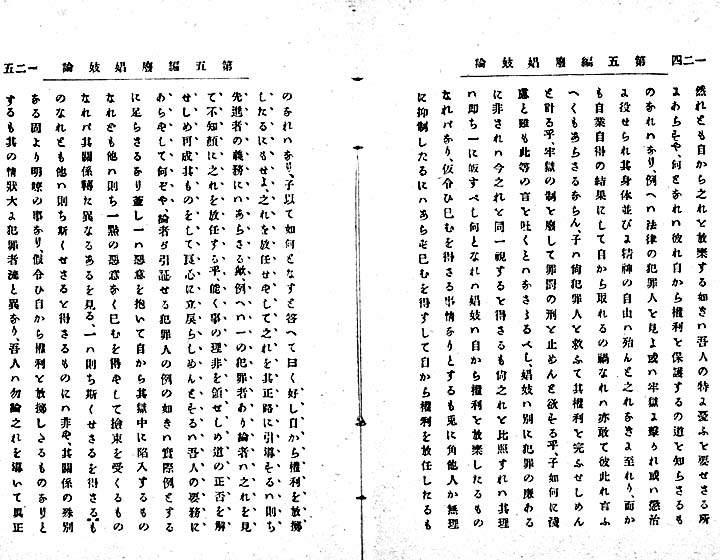 一二四 第五編廢娼妓論
然れとも自から之れと放棄する所の四なる一吾人の特よ憂ふと要せさる所
よあらそや、何とあれハ彼れ自から權利と保護するの道と知らさるも
のあれハあり、例へハ法律の犯罪人と見よ或ハ牢獄よ繫りれ或ハ懲治
よ役せられ其身体並びよ精神の自由ハ殆んと之れあきよ至れり、而か
も自業自得の結果にして自から取れるの禍なれハ亦敢て彼此れ言ふ
へくもあらさるあらん、子ハ尙犯罪人と救ふて其權利と完ふせしめん
と計る乎、牢獄の制と廢して罪罰の刑と止めんと欲そる乎、子如何に淺
慮と雖も此等の言と吐くとハあさゝるべし、娼妓ハ別に犯罪の廉ある
に非されハ今之れと同一視すると得さるも尙之れと比照すれハ其理
ハ即ち一に皈すべし何となれハ娼妓ハ自から權利と放棄したるもの
なれバあり、仮令ひ已むを得さる事情ありとするも兎に角他人か無理
に抑制したるにハあらそ已むを得すして自から權利を放任したるも
一二五 第五編廢娼妓論
のあれハあり、子以て如何となすと答へて曰く好し自から權利を放擲
したるにもせよ、之れを放任せそして之れを其正路に引導そるハ則ち
先進者の義務にハあらさる歟、例へハ一の犯罪者あり論者ハ之れを見
て不知顔に之れを放任する乎、能く事の理非を頒せしめ道の正否を解
せしめ可成其ものをして良心に立戾らしめんとそるハ吾人の要務に
あらそして何ぞや、論者が引証せる犯罪人の例の如きハ實際例とする
に足らさるあり蓋し一ハ惡意を抱いて自から其獄中に陷入するもの
なれとも他ハ則ち一點の惡意あく已むを得そして撿束を受くるもの
なれバ其關係轉た異なるあるを見る、一ハ則ち斯くせさるを得さるも
のなれとも他ハ則ち斯くせさると得さるものにハ非そ、其關係の殊別
ある固より明瞭の事あり、仮令ひ自から權利と放擲しさるものありと
するも其の情狀大よ犯罪者流と異あり、吾人ハ勿論之れを導いて眞正